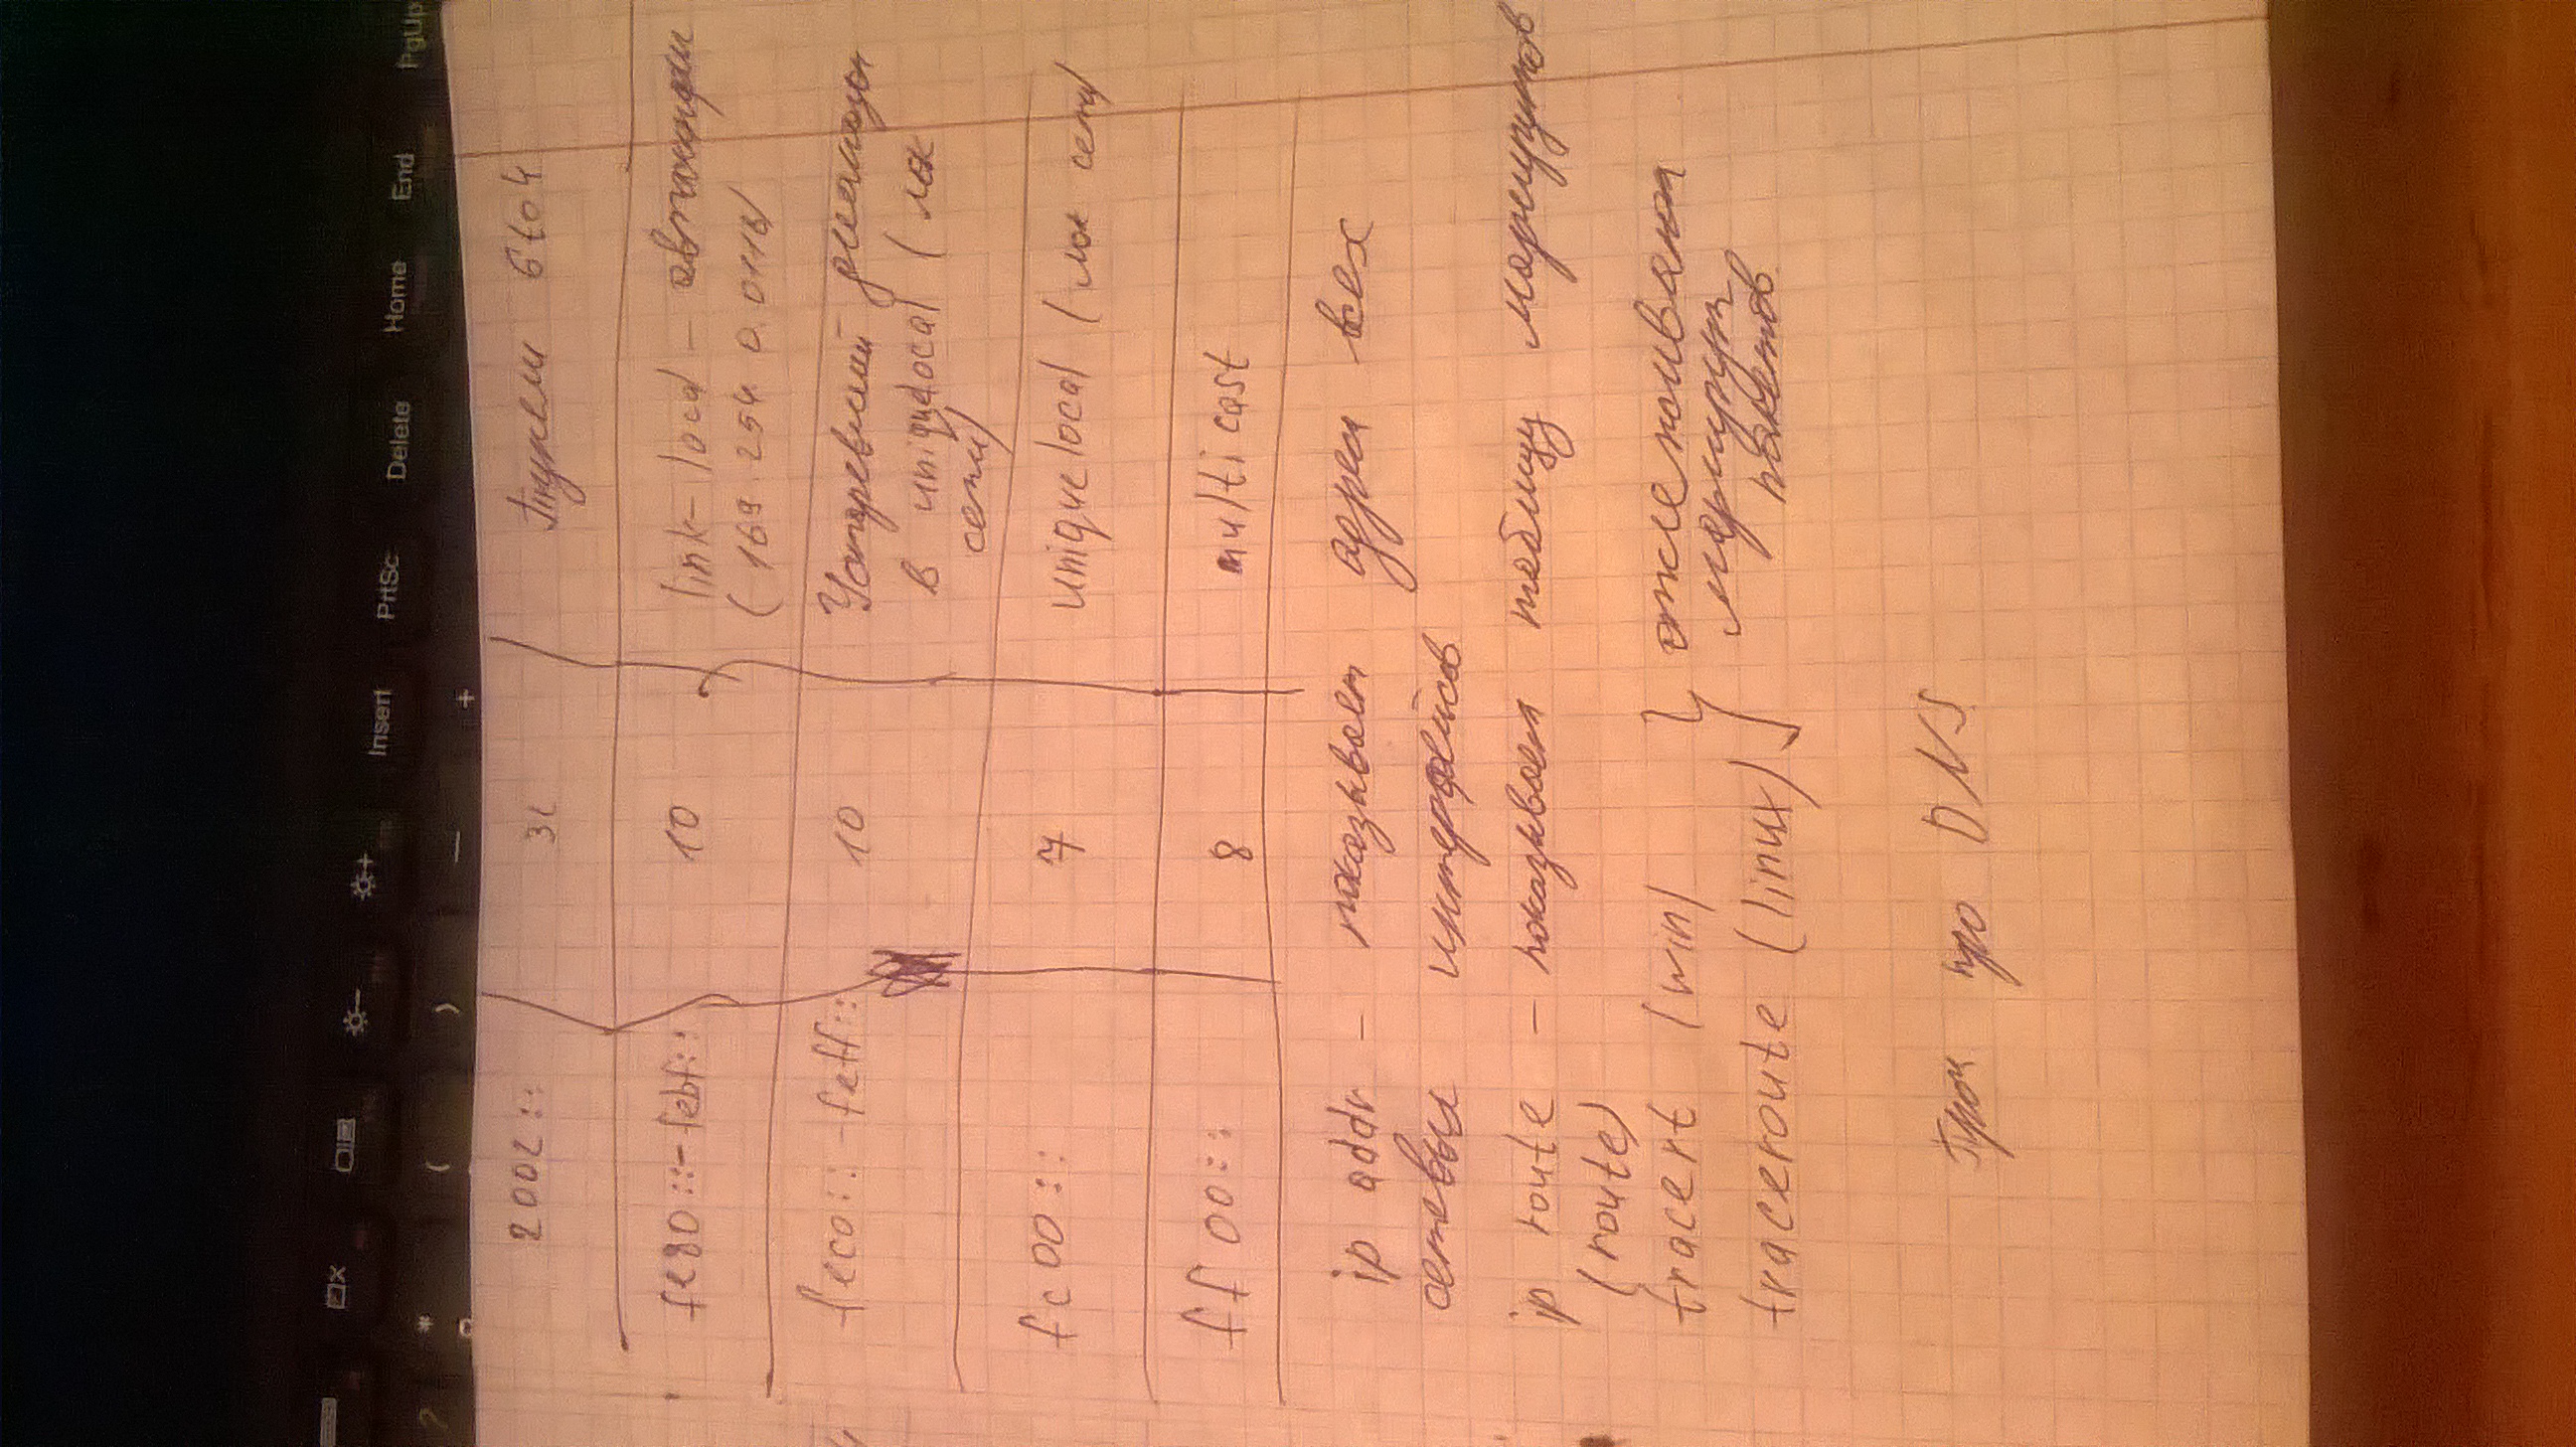 Insert PrtSc Delete Home End PgUp
* ( ) — +
2002:: 32 Туннели 6to4
fe80::-febf:: 10 link-local –
(169.254.0.0/16)
fec0::-feff:: 10 Устаревший диапазон
в uniquelocal (лок
сети)
fc00:: 7 uniquelocal (лок сети)
ff00:: 8 multicast
ip addr – показывает адреса всех
сетевых интерфейсов
ip route – показывает таблицу маршрутов
(route)
tracert (win) отслеживают
маршрут
traceroute (linux) пакетов
про DNS